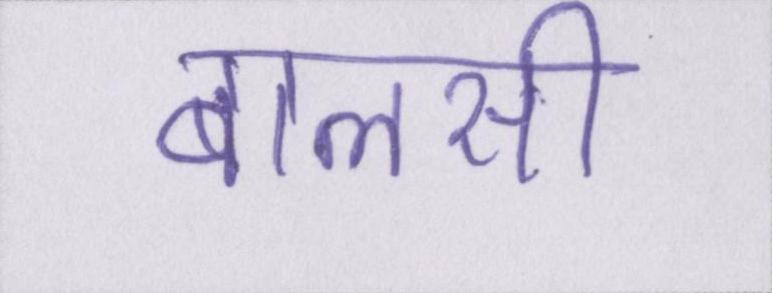 बालसी